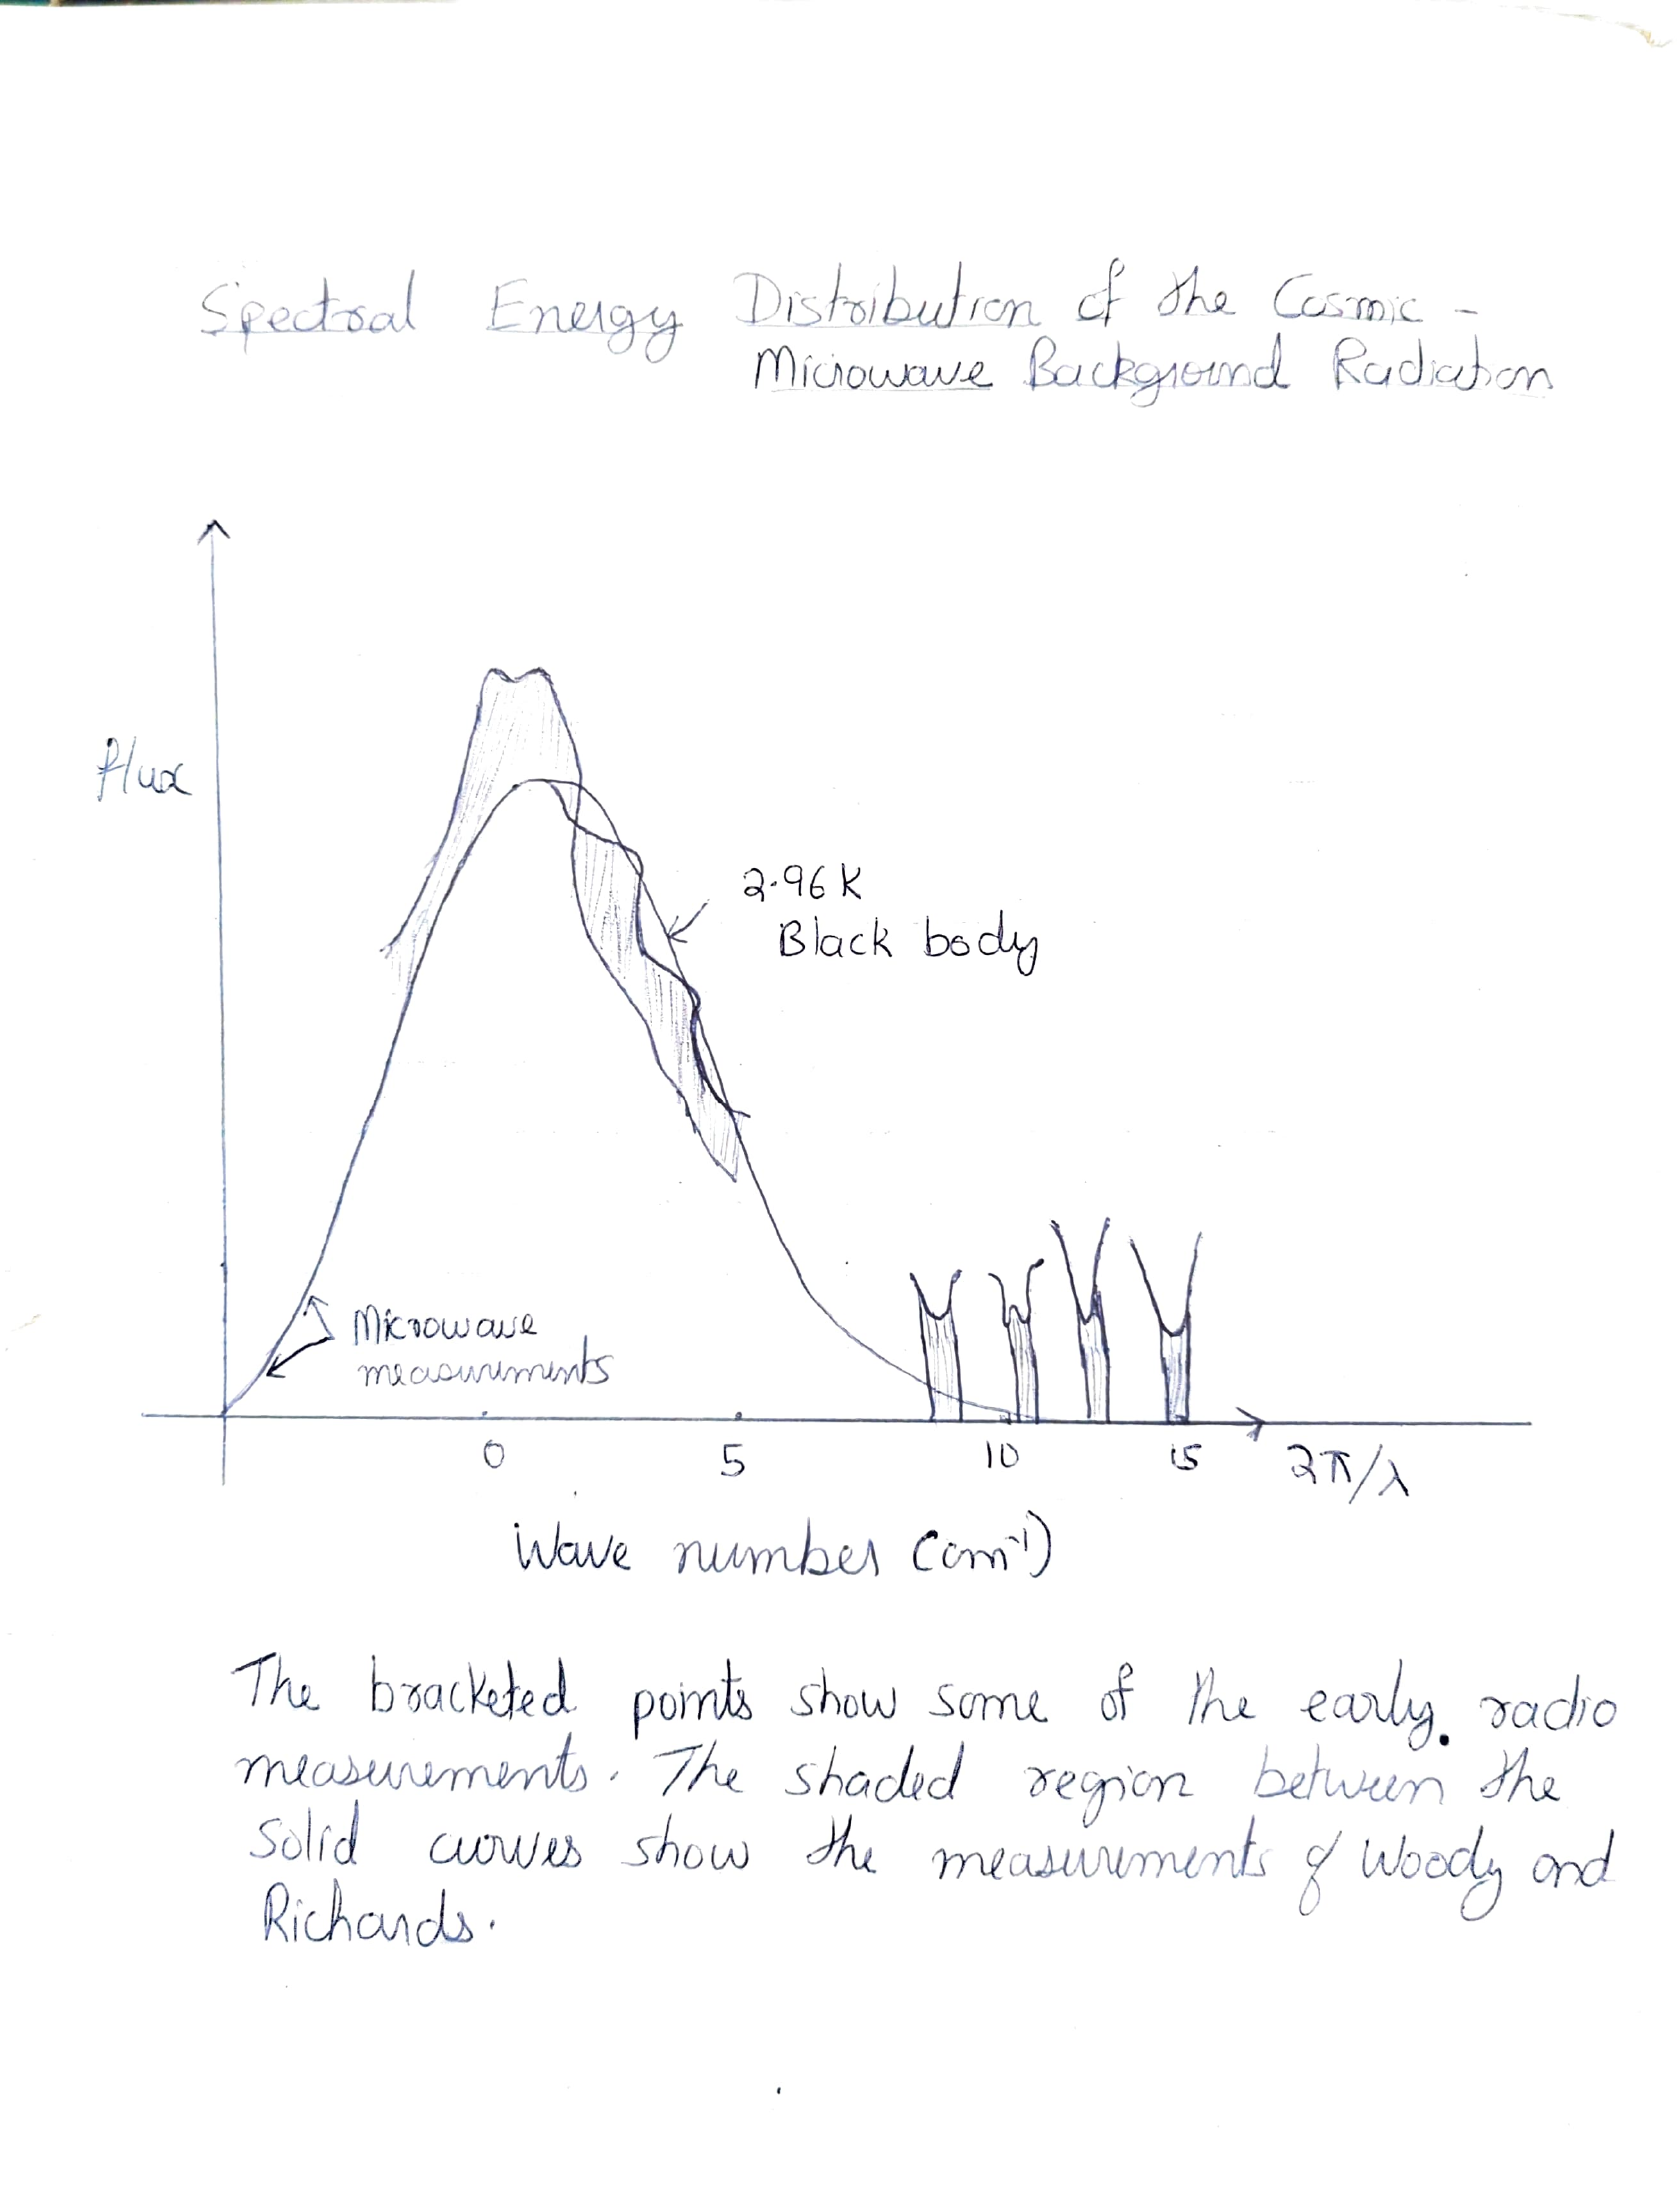 Spectral Energy Distribution of the Cosmic -
Microwave Background Radiation
flux
2.96 K
Black body
Microwave
measurements
0 5 10 15 2π/λ
Wave number (cm⁻¹)
The bracketed points show some of the early. radio
measurements. The shaded region between the
solid curves show the measurements of Woody and
Richards.